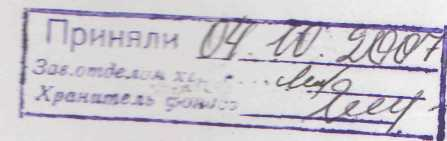 Приняли 04.10.2007
Зав.отделом
Хранитель фондов